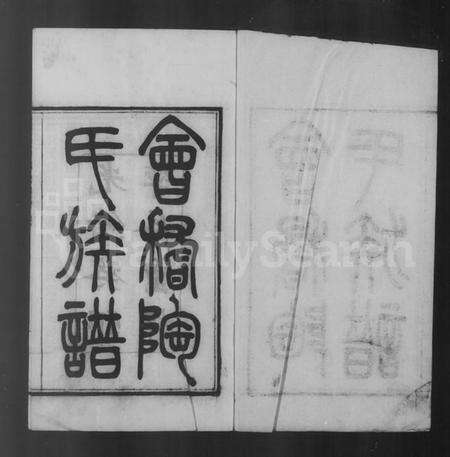 會稽陶
氏族譜
FamilySearch